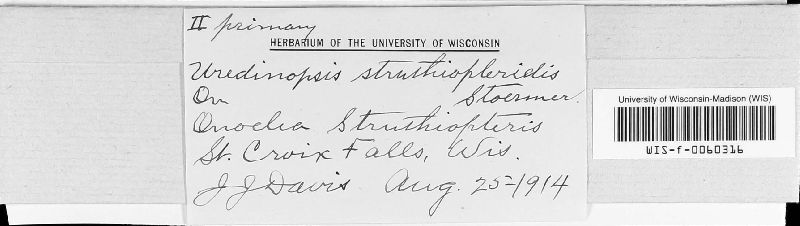 II primary
HERBARIUM OF THE UNIVERSITY OF WISCONSIN
Uredinopsis struthiopteridis
On Stoermer.
Onoclea Struthiopteris
St. Croix Falls, Wis.
J J Davis Aug. 25-1914
University of Wisconsin-Madison (WIS)
WIS-f-0060316